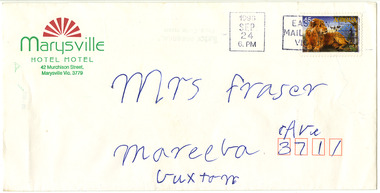 Marysville
HOTEL MOTEL
42 Murchison Street,
Marysville Vic. 3779
1996
SEP
24
6. PM
EAS
MAIL
VI
45
Mrs Fraser
Mareeba
Ave
3711
Buxton